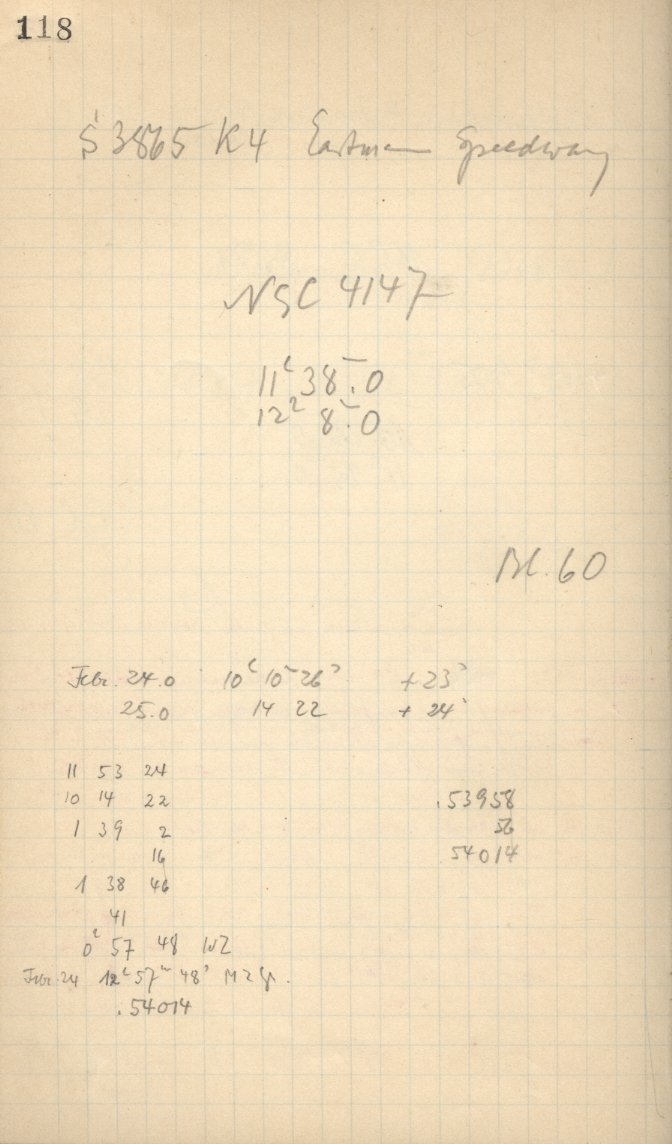 118
S 3865 K4 Eastman Speedway
NGC 4147
11ʰ 38ᵐ.0
12ʰ 8ᵐ.0
Bl. 60
Febr. 24.0 10ʰ 10ᵐ 26ˢ + 23ˢ
25.0 14 22 + 24ˢ
11 53 24
10 14 22 .53958
1 39 2 56
16 54014
1 38 46
41
0ʰ 57 48 WZ
Febr. 24 12ʰ 57ᵐ 48ˢ M Z Gr.
.54014